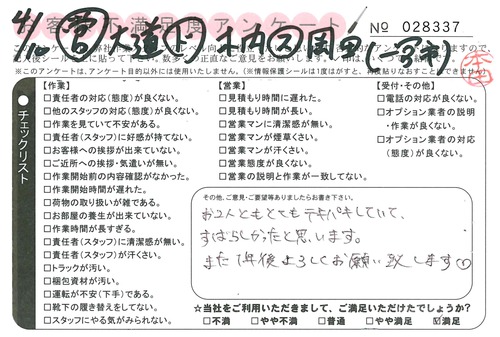 お客様不満足度アンケート
№ 028337
※このアンケート、アンケート目的以外には使用いたしません。(※情報保護シールは1度はがすと、再度貼りなおすことできません)
チェックリスト
【作業】
□責任者の対応(態度)が良くない。
□他のスタッフの対応(態度)が良くない。
□作業を見ていて不安がある。
□責任者(スタッフ)に好感が持てない。
□お客様への挨拶が出来ていない。
□ご近所への挨拶・気遣いが無い。
□作業開始前の内容確認がなかった。
□作業開始時間が遅れた。
□荷物の取り扱いが雑である。
□お部屋の養生が出来ていない。
□作業時間が長すぎる。
□責任者(スタッフ)に清潔感が無い。
□責任者(スタッフ)が汗くさい。
□トラックが汚い。
□梱包資材が汚い。
□運転が不安(下手)である。
□靴下の履き替えをしてない。
□スタッフにやる気がみられない。
【営業】
□見積もり時間に遅れた。
□見積もり時間が長い。
□営業マンに清潔感が無い。
□営業マンが煙草くさい。
□営業マンが汗くさい。
□営業態度が良くない。
□営業の説明と作業が一致してない。
【受付・その他】
□電話の対応が良くない。
□オプション業者の説明・作業が良くない。
□オプション業者の対応(態度)が良くない。
その他、ご意見・ご要望等ありましたらお書き下さい。
お2人ともとてもテキパキしていて、
すばらしかったと思います。
また1年後よろしくお願い致します
☆当社をご利用いただきまして、ご満足いただけたでしょうか?
□不満 □やや不満 □普通 □やや満足 ☑満足